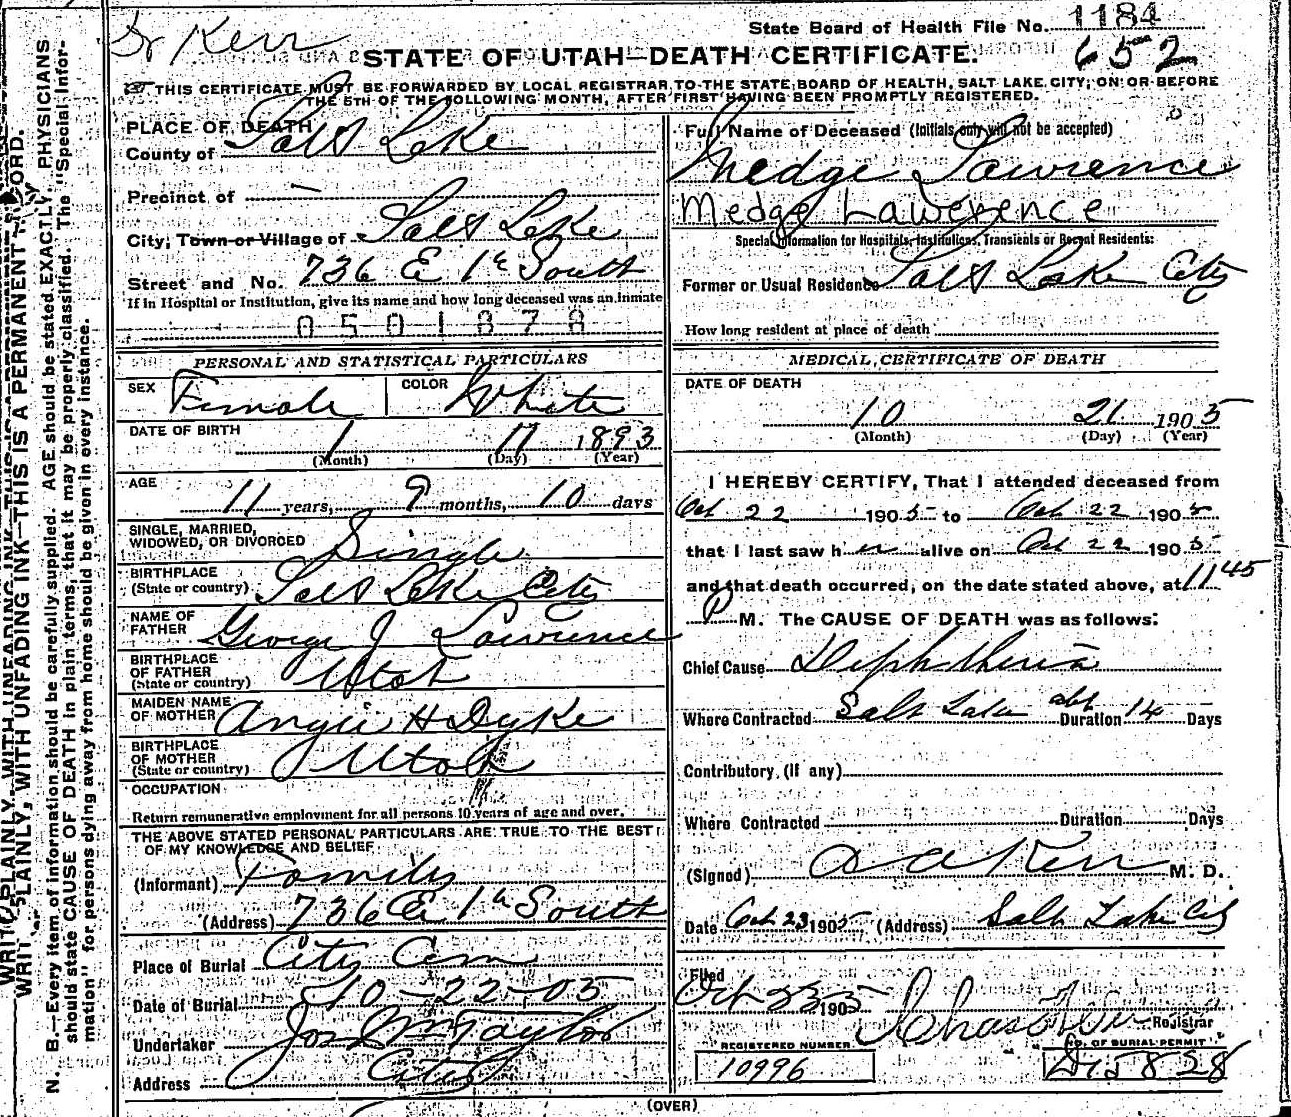 Dr Kerr
State Board of Health File No. 1184
652
STATE OF UTAH—DEATH CERTIFICATE.
THIS CERTIFICATE MUST BE FORWARDED BY LOCAL REGISTRAR TO THE STATE BOARD OF HEALTH, SALT LAKE CITY, ON OR BEFORE
THE 5TH OF THE FOLLOWING MONTH, AFTER FIRST HAVING BEEN PROMPTLY REGISTERED.
PLACE OF DEATH
County of Salt Lake
Precinct of —
City, Town or Village of Salt Lake
Street and No. 736 E 1st South
If in Hospital or Institution, give its name and how long deceased was an inmate
0501878
PERSONAL AND STATISTICAL PARTICULARS
SEX Female COLOR White
DATE OF BIRTH 1 11 1893
(Month) (Day) (Year)
AGE 11 years, 9 months, 10 days
SINGLE, MARRIED,
WIDOWED, OR DIVORCED Single
BIRTHPLACE
(State or country) Salt Lake City
NAME OF
FATHER George J Lawrence
BIRTHPLACE
OF FATHER
(State or country) Utah
MAIDEN NAME
OF MOTHER Angie H Dyke
BIRTHPLACE
OF MOTHER
(State or country) Utah
OCCUPATION
Return remunerative employment for all persons 10 years of age and over.
THE ABOVE STATED PERSONAL PARTICULARS ARE TRUE TO THE BEST
OF MY KNOWLEDGE AND BELIEF
(Informant) Family
(Address) 736 E 1st South
Place of Burial City Cem
Date of Burial 10-22-05
Undertaker Jos Wm Taylor
Address City
Full Name of Deceased (Initials only will not be accepted)
Medge Lawrence
Medge Lawerence
Special Information for Hospitals, Institutions, Transients or Recent Residents:
Former or Usual Residence Salt Lake City
How long resident at place of death
MEDICAL CERTIFICATE OF DEATH
DATE OF DEATH
10 21 1905
(Month) (Day) (Year)
I HEREBY CERTIFY, That I attended deceased from
Oct 22 1905 to Oct 22 1905
that I last saw her alive on Oct 22 1905
and that death occurred, on the date stated above, at 11 45
P M. The CAUSE OF DEATH was as follows:
Chief Cause Diphtheria
Where Contracted Salt Lake abt Duration 14 Days
Contributory (if any)
Where Contracted Duration Days
(Signed) Kerr M. D.
Date Oct 23 1905 (Address) Salt Lake City
Filed
Oct 23 1905 Chas Registrar
REGISTERED NUMBER
10996
NO. OF BURIAL PERMIT
D15828
(OVER)
WRITE PLAINLY, WITH UNFADING INK—THIS IS A PERMANENT RECORD.
N. B.—Every item of information should be carefully supplied. AGE should be stated EXACTLY. PHYSICIANS
should state CAUSE OF DEATH in plain terms, that it may be properly classified. The "Special Infor-
mation" for persons dying away from home should be given in every instance.